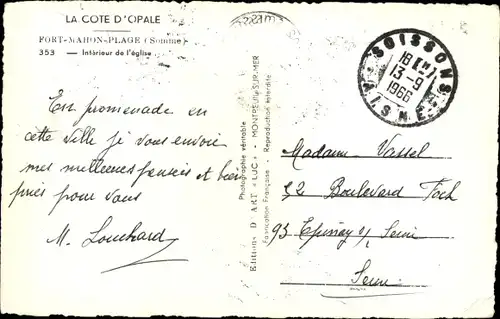 LA COTE D'OPALE
FORT-MAHON-PLAGE (Somme)
353 — Intérieur de l'église
En promenade en
cette ville je vous envoie
mes meilleures pensées et bien
près pour vous
M. Louchard
Editions D'ART "LUC" - MONTREUIL-SUR-MER
Photographie véritable
Fabrication Française - Reproduction interdite
SOISSONS
18 H
13-9
1966
AISNE
Madame Vassel
52 Boulevard Foch
93 Epinay s/ Seine
Seine